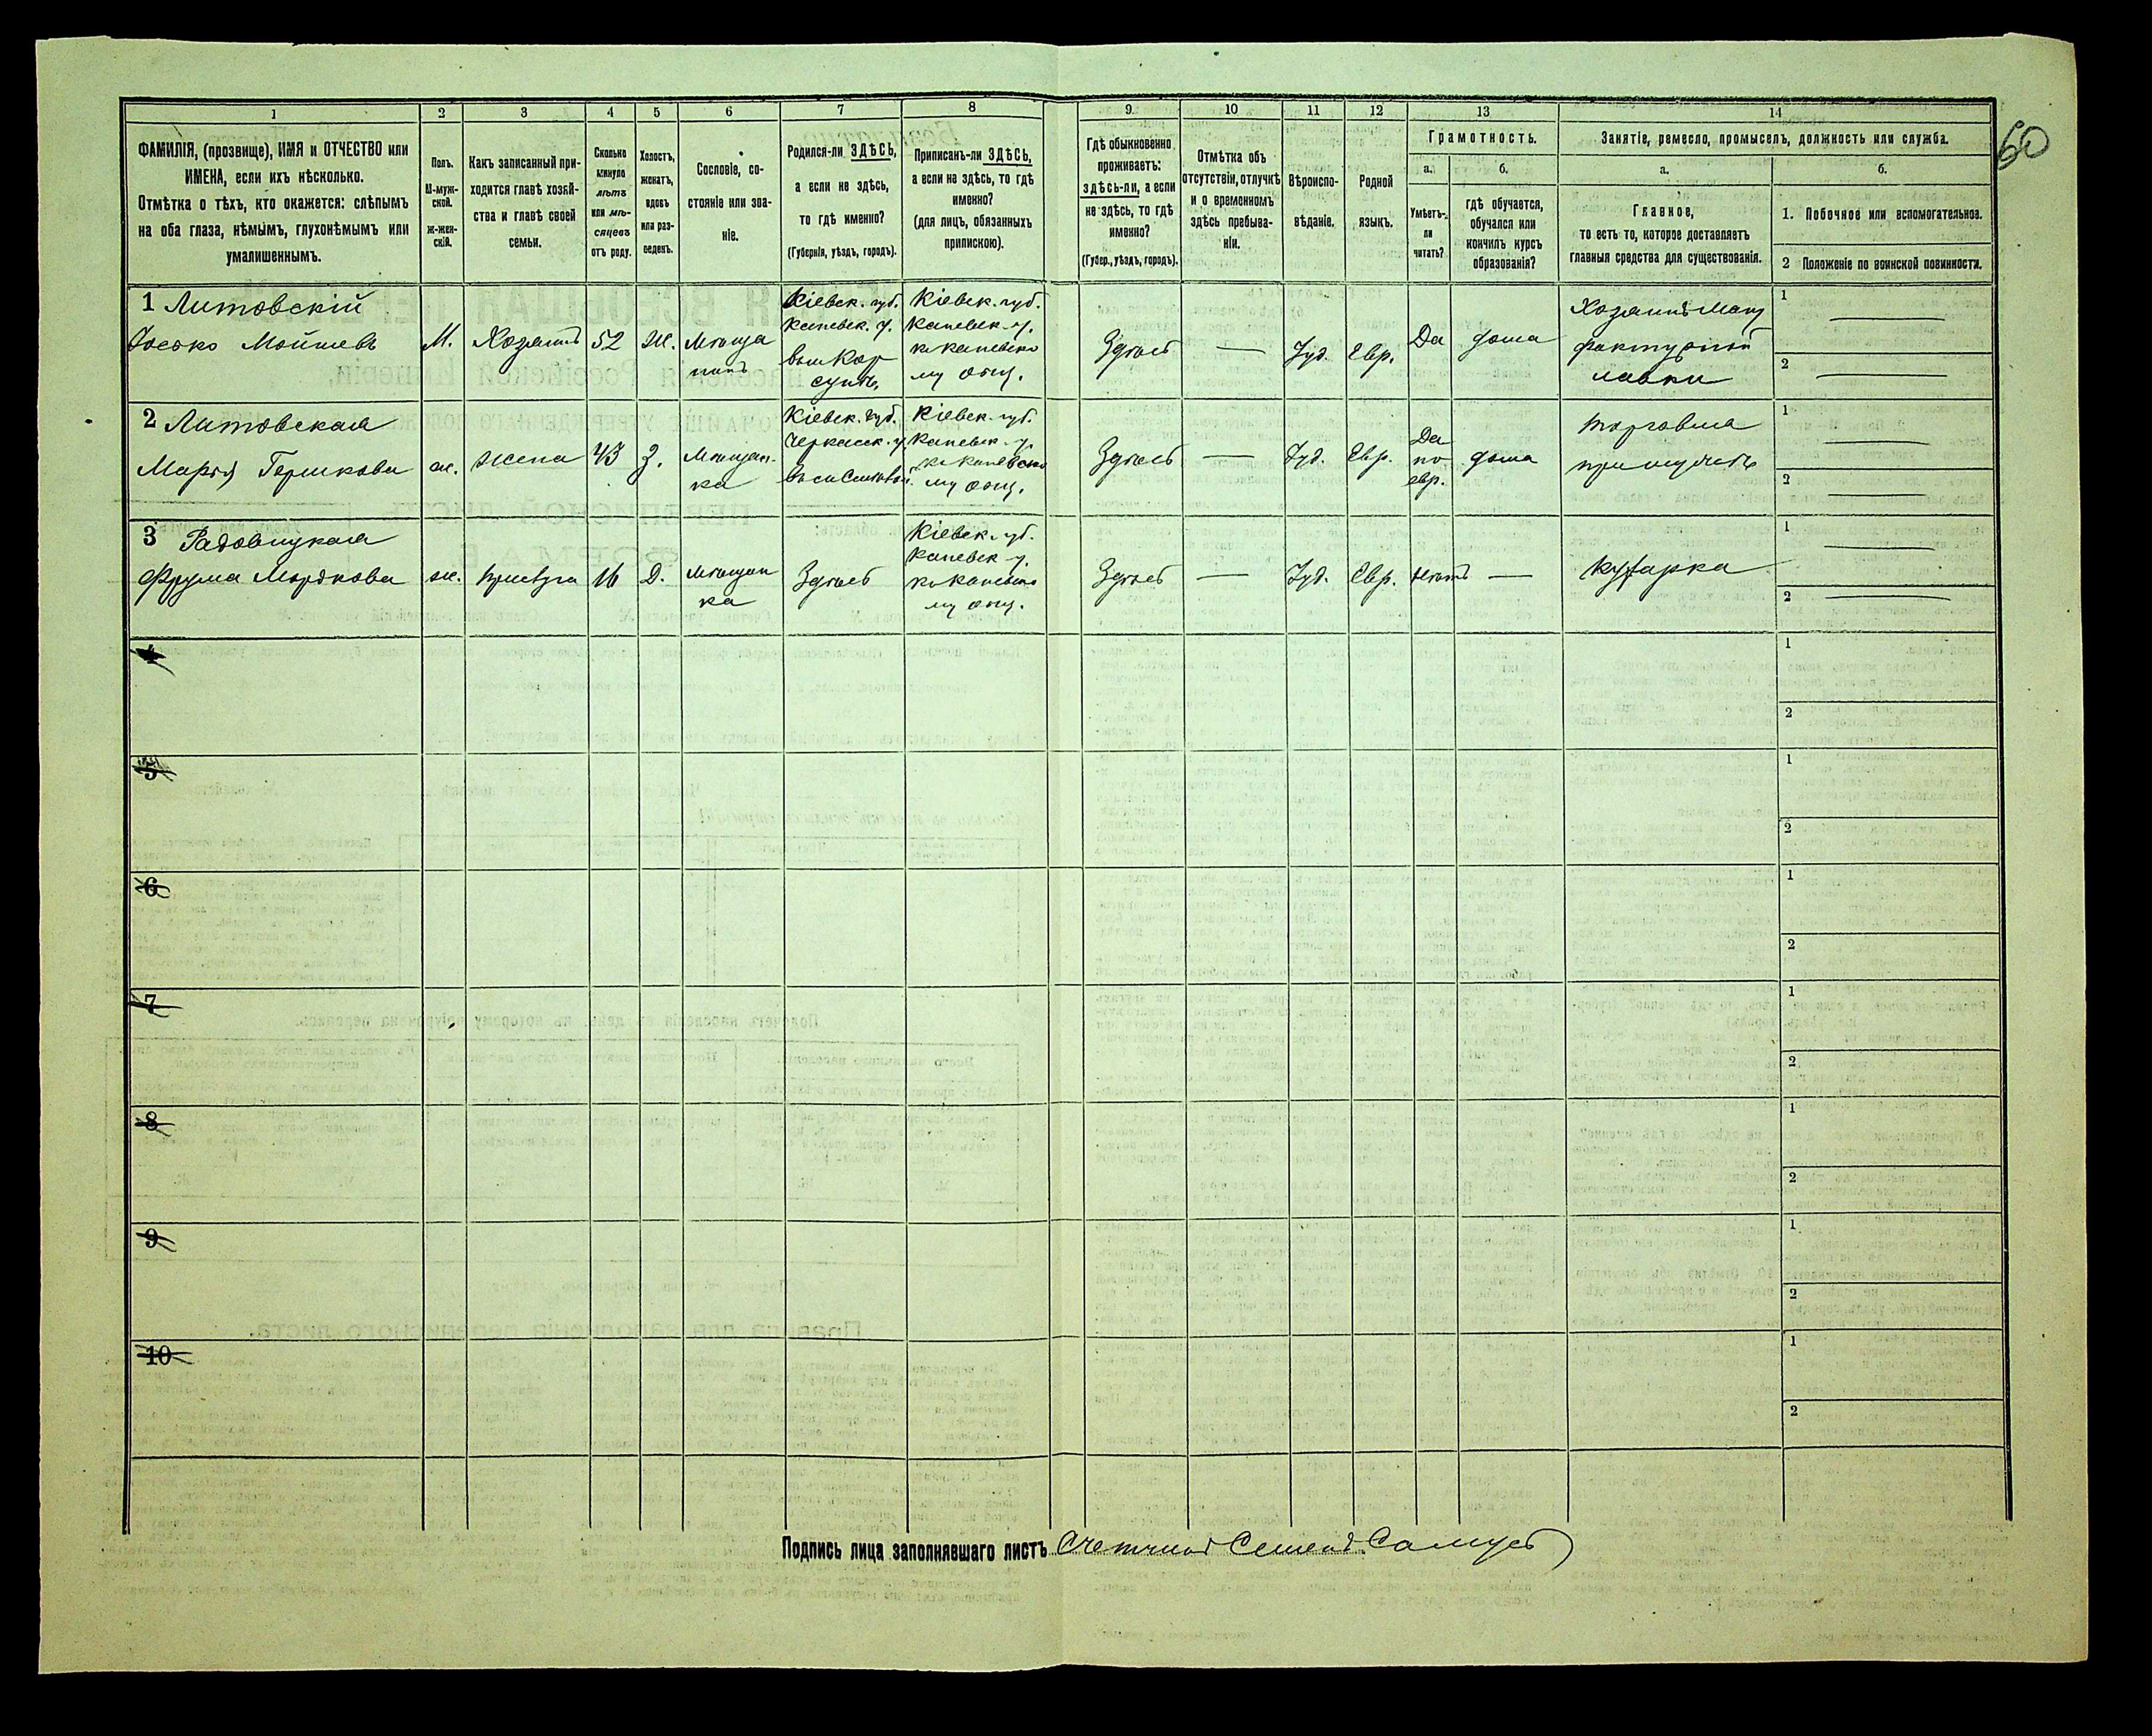 1 2 3 4 5 6 7 8 9 10 11 12 13 14
ФАМИЛІЯ, (прозвище), ИМЯ и ОТЧЕСТВО или
ИМЕНА, если ихъ нѣсколько.
Отмѣтка о тѣхъ, кто окажется: слѣпымъ
на оба глаза, нѣмымъ, глухонѣмымъ или
умалишеннымъ.
Полъ.
М-муж-
ской.
Ж-жен-
скій.
Какъ записанный при-
ходится главѣ хозяй-
ства и главѣ своей
семьи.
Сколько
минуло
лѣтъ
или мѣ-
сяцевъ
отъ роду.
Холостъ,
женатъ,
вдовъ
или раз-
веденъ.
Сословіе, со-
стояніе или зва-
ніе.
Родился-ли ЗДѢСЬ,
а если не здѣсь,
то гдѣ именно?
(Губернія, уѣздъ, городъ).
Приписанъ-ли ЗДѢСЬ,
а если не здѣсь, то гдѣ
именно?
(для лицъ, обязанныхъ
припискою).
Гдѣ обыкновенно
проживаетъ:
здѣсь-ли, а если
не здѣсь, то гдѣ
именно?
(Губер., уѣздъ, городъ).
Отмѣтка объ
отсутствіи, отлучкѣ
и о временномъ
здѣсь пребыва-
ніи.
Вѣроиспо-
вѣданіе.
Родной
языкъ.
Грамотность.
а.
Умѣетъ-
ли
читать?
б.
гдѣ обучается,
обучался или
кончилъ курсъ
образованія?
Занятіе, ремесло, промыселъ, должность или служба.
а.
Главное,
то есть то, которое доставляетъ
главныя средства для существованія.
б.
1. Побочное или вспомогательное.
2 Положеніе по воинской повинности.
60
1 Литовскій
Іосько Мойшевъ
М.
Хозяинъ
52
Ж.
Мѣща
нинъ
Кіевск. губ.
Каневск. у.
въ м Кор
сунѣ,
Кіевск. губ.
Каневск. у.
къ Каневско
му общ.
Здѣсь
—
Іуд.
Евр.
Да
дома
Хозяинъ Ману
фактурной
лавки
1 —
2 —
2 Литовская
Марья Гершкова
ж.
жена
43
З.
Мѣщан-
ка
Кіевск. губ.
Черкасск. у.
Кіевск. губ.
Каневск. у.
къ Каневско
му общ.
Здѣсь
—
Іуд.
Евр.
Да
по
евр.
дома
торговля
при мужѣ
1 —
2 —
3 Радовицкая
Фрума Мордкова
ж.
прислуга
16
Д.
мѣщан
ка
Здѣсь
Кіевск. губ.
Каневск у.
къ Каневско
му общ.
Здѣсь
—
Іуд.
Евр.
Нѣтъ
—
Кухарка
1 —
2 —
4
1
2
5
1
2
6
1
2
7
1
2
8
1
2
9
1
2
10
1
2
Подпись лица заполнявшаго листъ Счетчикъ Семенъ Самусь